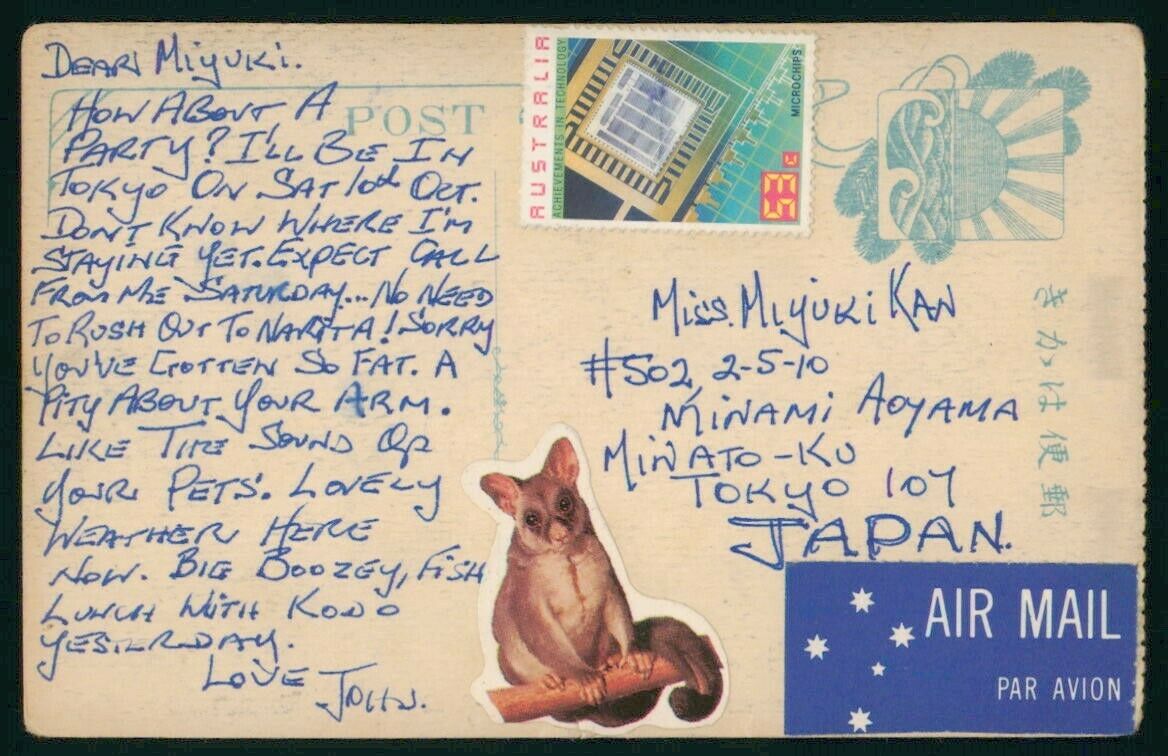 DEAR MIYUKI.
HOW ABOUT A
PARTY? I'LL BE IN
TOKYO ON SAT 10th OCT.
DON'T KNOW WHERE I'M
STAYING YET. EXPECT CALL
FROM ME SATURDAY... NO NEED
TO RUSH OUT TO NARITA! SORRY
YOU'VE GOTTEN SO FAT. A
PITY ABOUT YOUR ARM.
LIKE THE SOUND OF
YOUR PETS. LOVELY
WEATHER HERE
NOW. BIG BOOZEY, FISH
LUNCH WITH KODO
YESTERDAY.
LOVE JOHN.
POST
AUSTRALIA
ACHIEVEMENTS IN TECHNOLOGY
MICROCHIPS
53c
MISS. MIYUKI KAN
#502, 2-5-10
MINAMI AOYAMA
MINATO-KU
TOKYO 107
JAPAN.
きかは便郵
AIR MAIL
PAR AVION